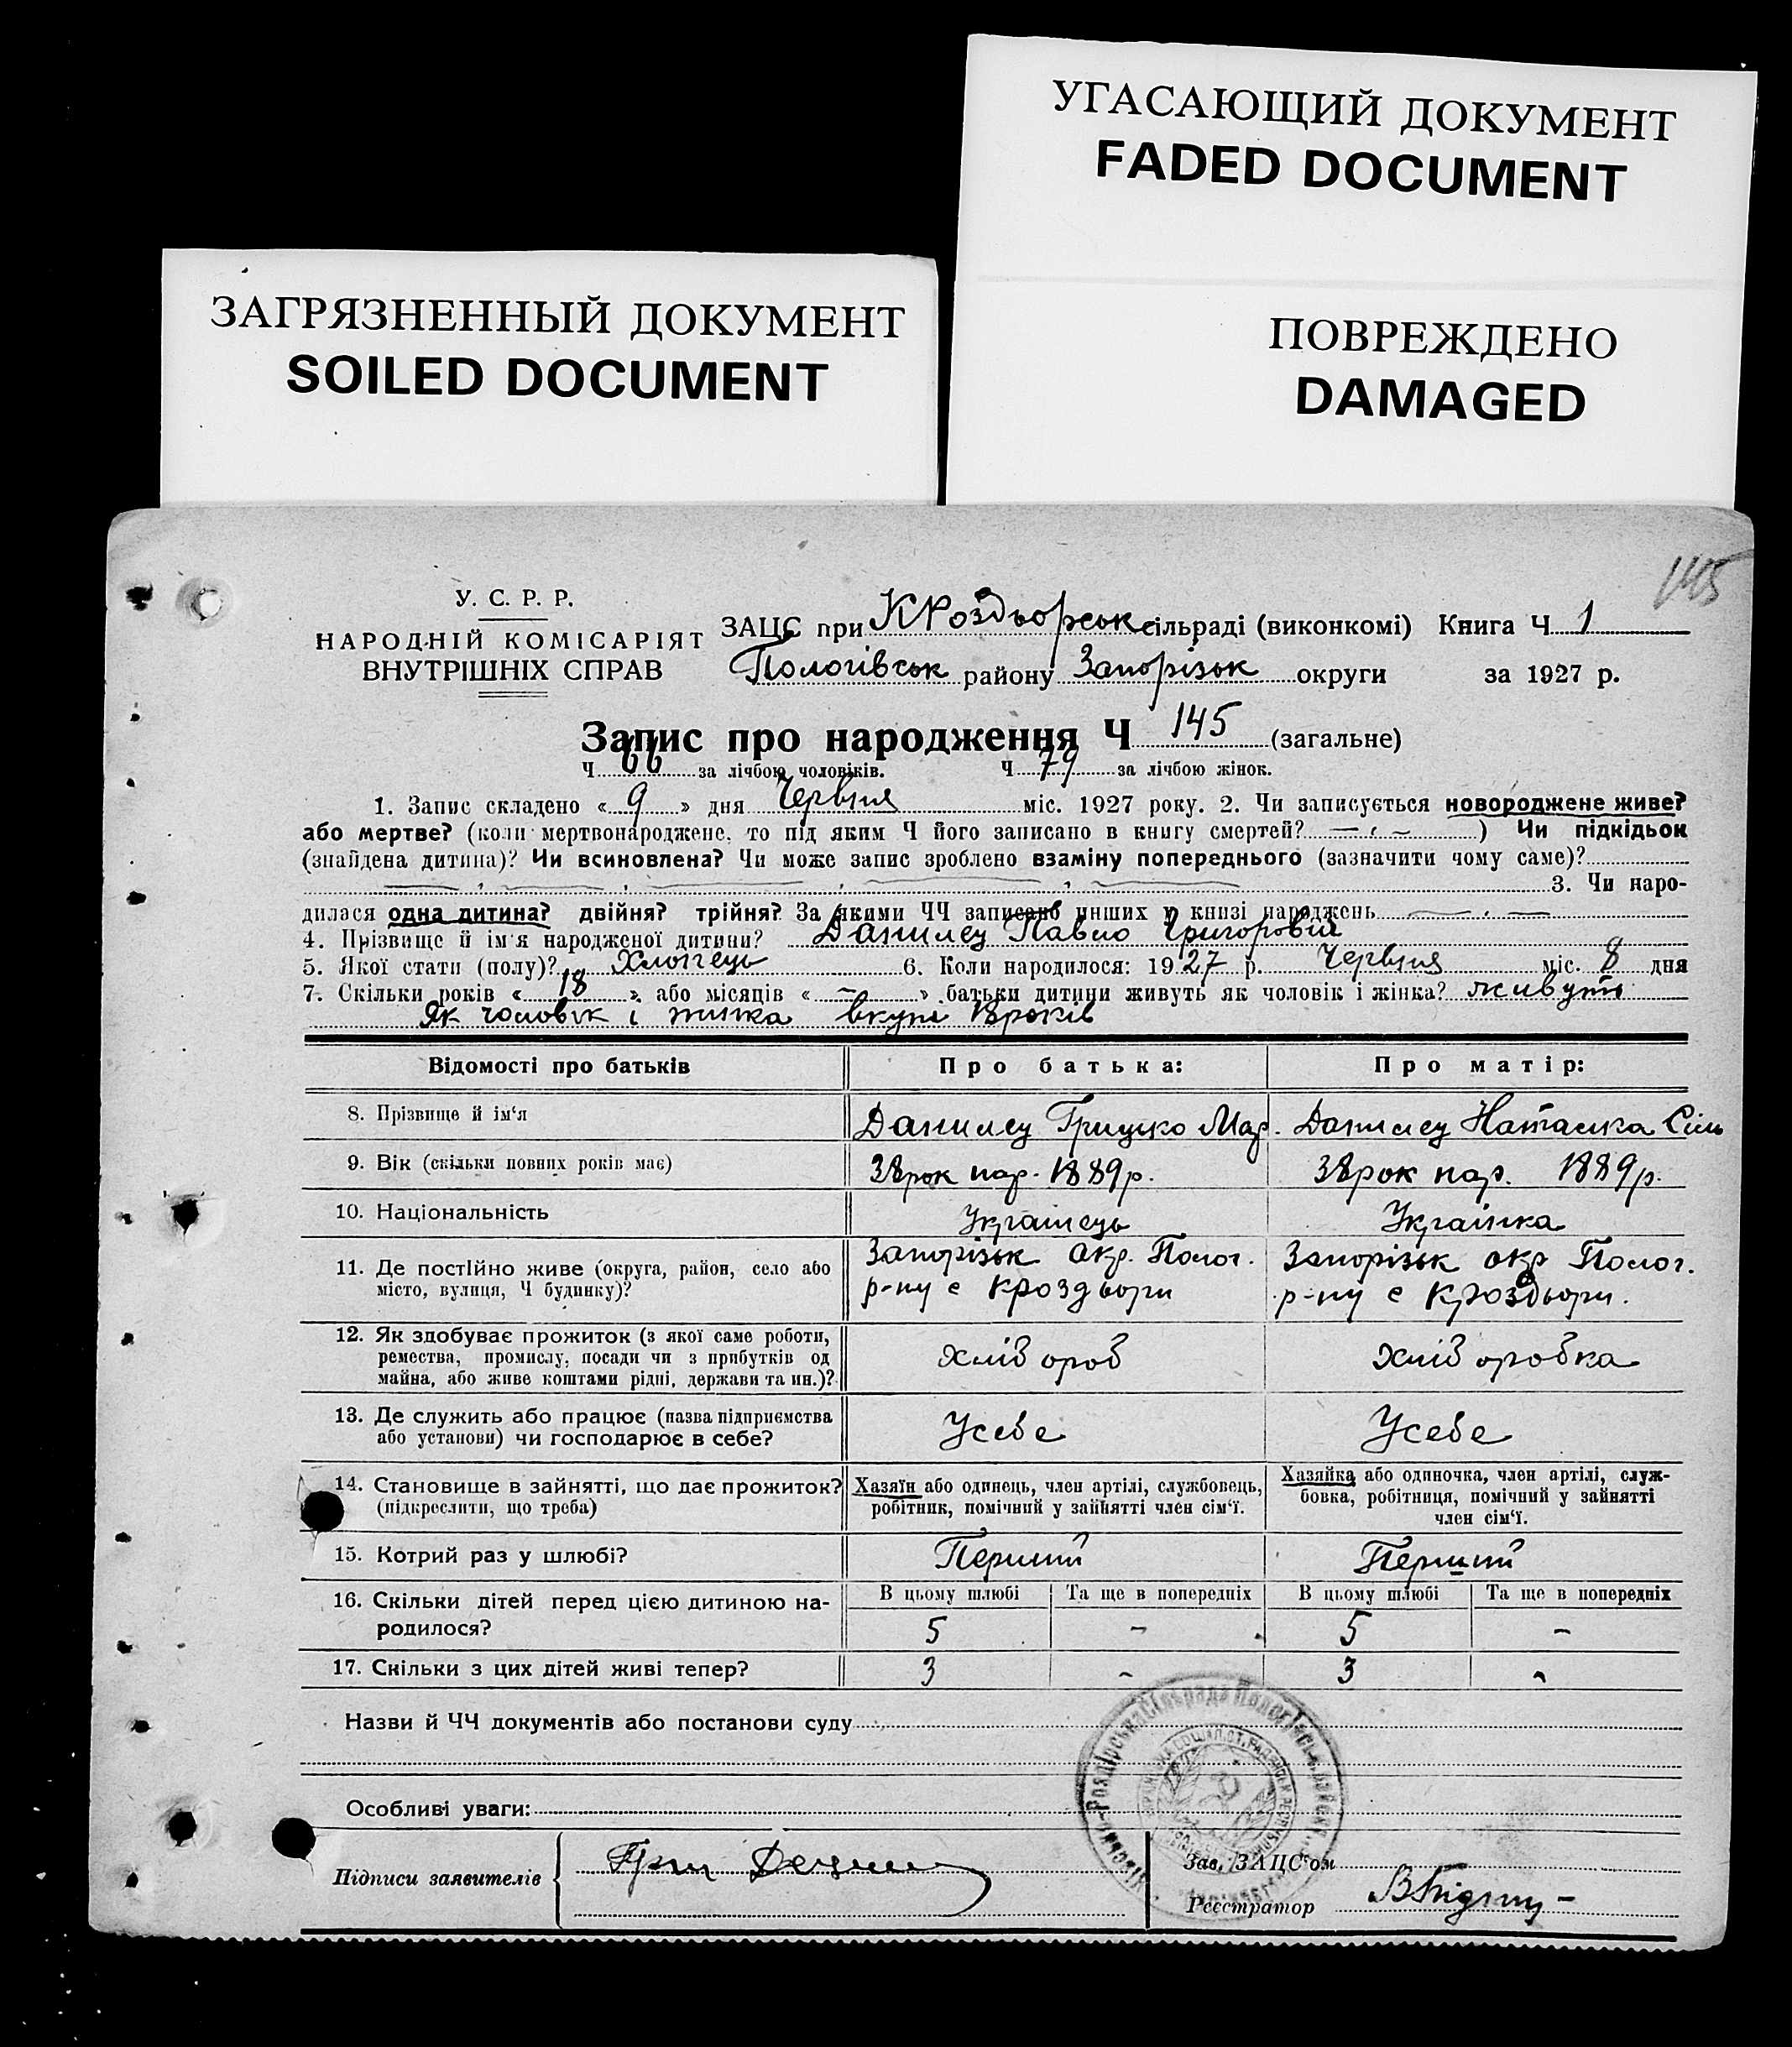 УГАСАЮЩИЙ ДОКУМЕНТ
FADED DOCUMENT
ЗАГРЯЗНЕННЫЙ ДОКУМЕНТ
SOILED DOCUMENT
ПОВРЕЖДЕНО
DAMAGED
145
У. С. Р. Р.
НАРОДНІЙ КОМІСАРІЯТ
ВНУТРІШНІХ СПРАВ
ЗАЦС при К Роздьорськ сільраді (виконкомі) Книга Ч 1
Пологівськ району Запорізьк округи за 1927 р.
Запис про народження Ч 145 (загальне)
Ч 66 за лічбою чоловіків. Ч 79 за лічбою жінок.
1. Запис складено « 9 » дня Червня міс. 1927 року. 2. Чи записується новороджене живе?
або мертве? (коли мертвонароджене, то під яким Ч його записано в книгу смертей? — ) Чи підкідьок
(знайдена дитина)? Чи всиновлена? Чи може запис зроблено взаміну попереднього (зазначити чому саме)?
3. Чи наро-
дилася одна дитина? двійня? трійня? За якими ЧЧ записано инших у книзі народжень
4. Прізвище й ім'я народженої дитини? Данилец Павло Григоровіч
5. Якої стати (полу)? Хлопець 6. Коли народилося: 1927 р. Червня міс. 8 дня
7. Скільки років « 18 » або місяців « — » батьки дитини живуть як чоловік і жінка? живуть
Як чоловік і жинка вкупі 18 років
Відомості про батьків Про батька: Про матір:
8. Прізвище й ім'я Данилец Грицко Мар. Данилец Наталка Сіль
9. Вік (скільки повних років має) 38 рок нар. 1889 р. 38 рок нар. 1889 р.
10. Національність Українець Українка
11. Де постійно живе (округа, район, село або місто, вулиця, Ч будинку)? Запорізьк окр. Полог. Запорізьк окр Полог.
р-ну с Кроздьори р-ну с Кроздьори.
12. Як здобуває прожиток (з якої саме роботи,
ремества, промислу, посади чи з прибутків од Хлібороб Хліборобка
майна, або живе коштами рідні, держави та ин.)?
13. Де служить або працює (назва підприємства
або установи) чи господарює в себе? Усебе Усебе
14. Становище в зайнятті, що дає прожиток? Хазяїн або одинець, член артілі, службовець, Хазяйка або одиночка, член артілі, служ-
(підкреслити, що треба) робітник, помічний у зайнятті член сім'ї. бовка, робітниця, помічний у зайнятті
член сім'ї.
15. Котрий раз у шлюбі? Перший Перший
16. Скільки дітей перед цією дитиною на- В цьому шлюбі Та ще в попередніх В цьому шлюбі Та ще в попередніх
родилося? 5 - 5 -
17. Скільки з цих дітей живі тепер? 3 - 3 -
Назви й ЧЧ документів або постанови суду
Особливі уваги:
Підписи заявителів Гриц
Зав. ЗАЦС'ом
Реєстратор